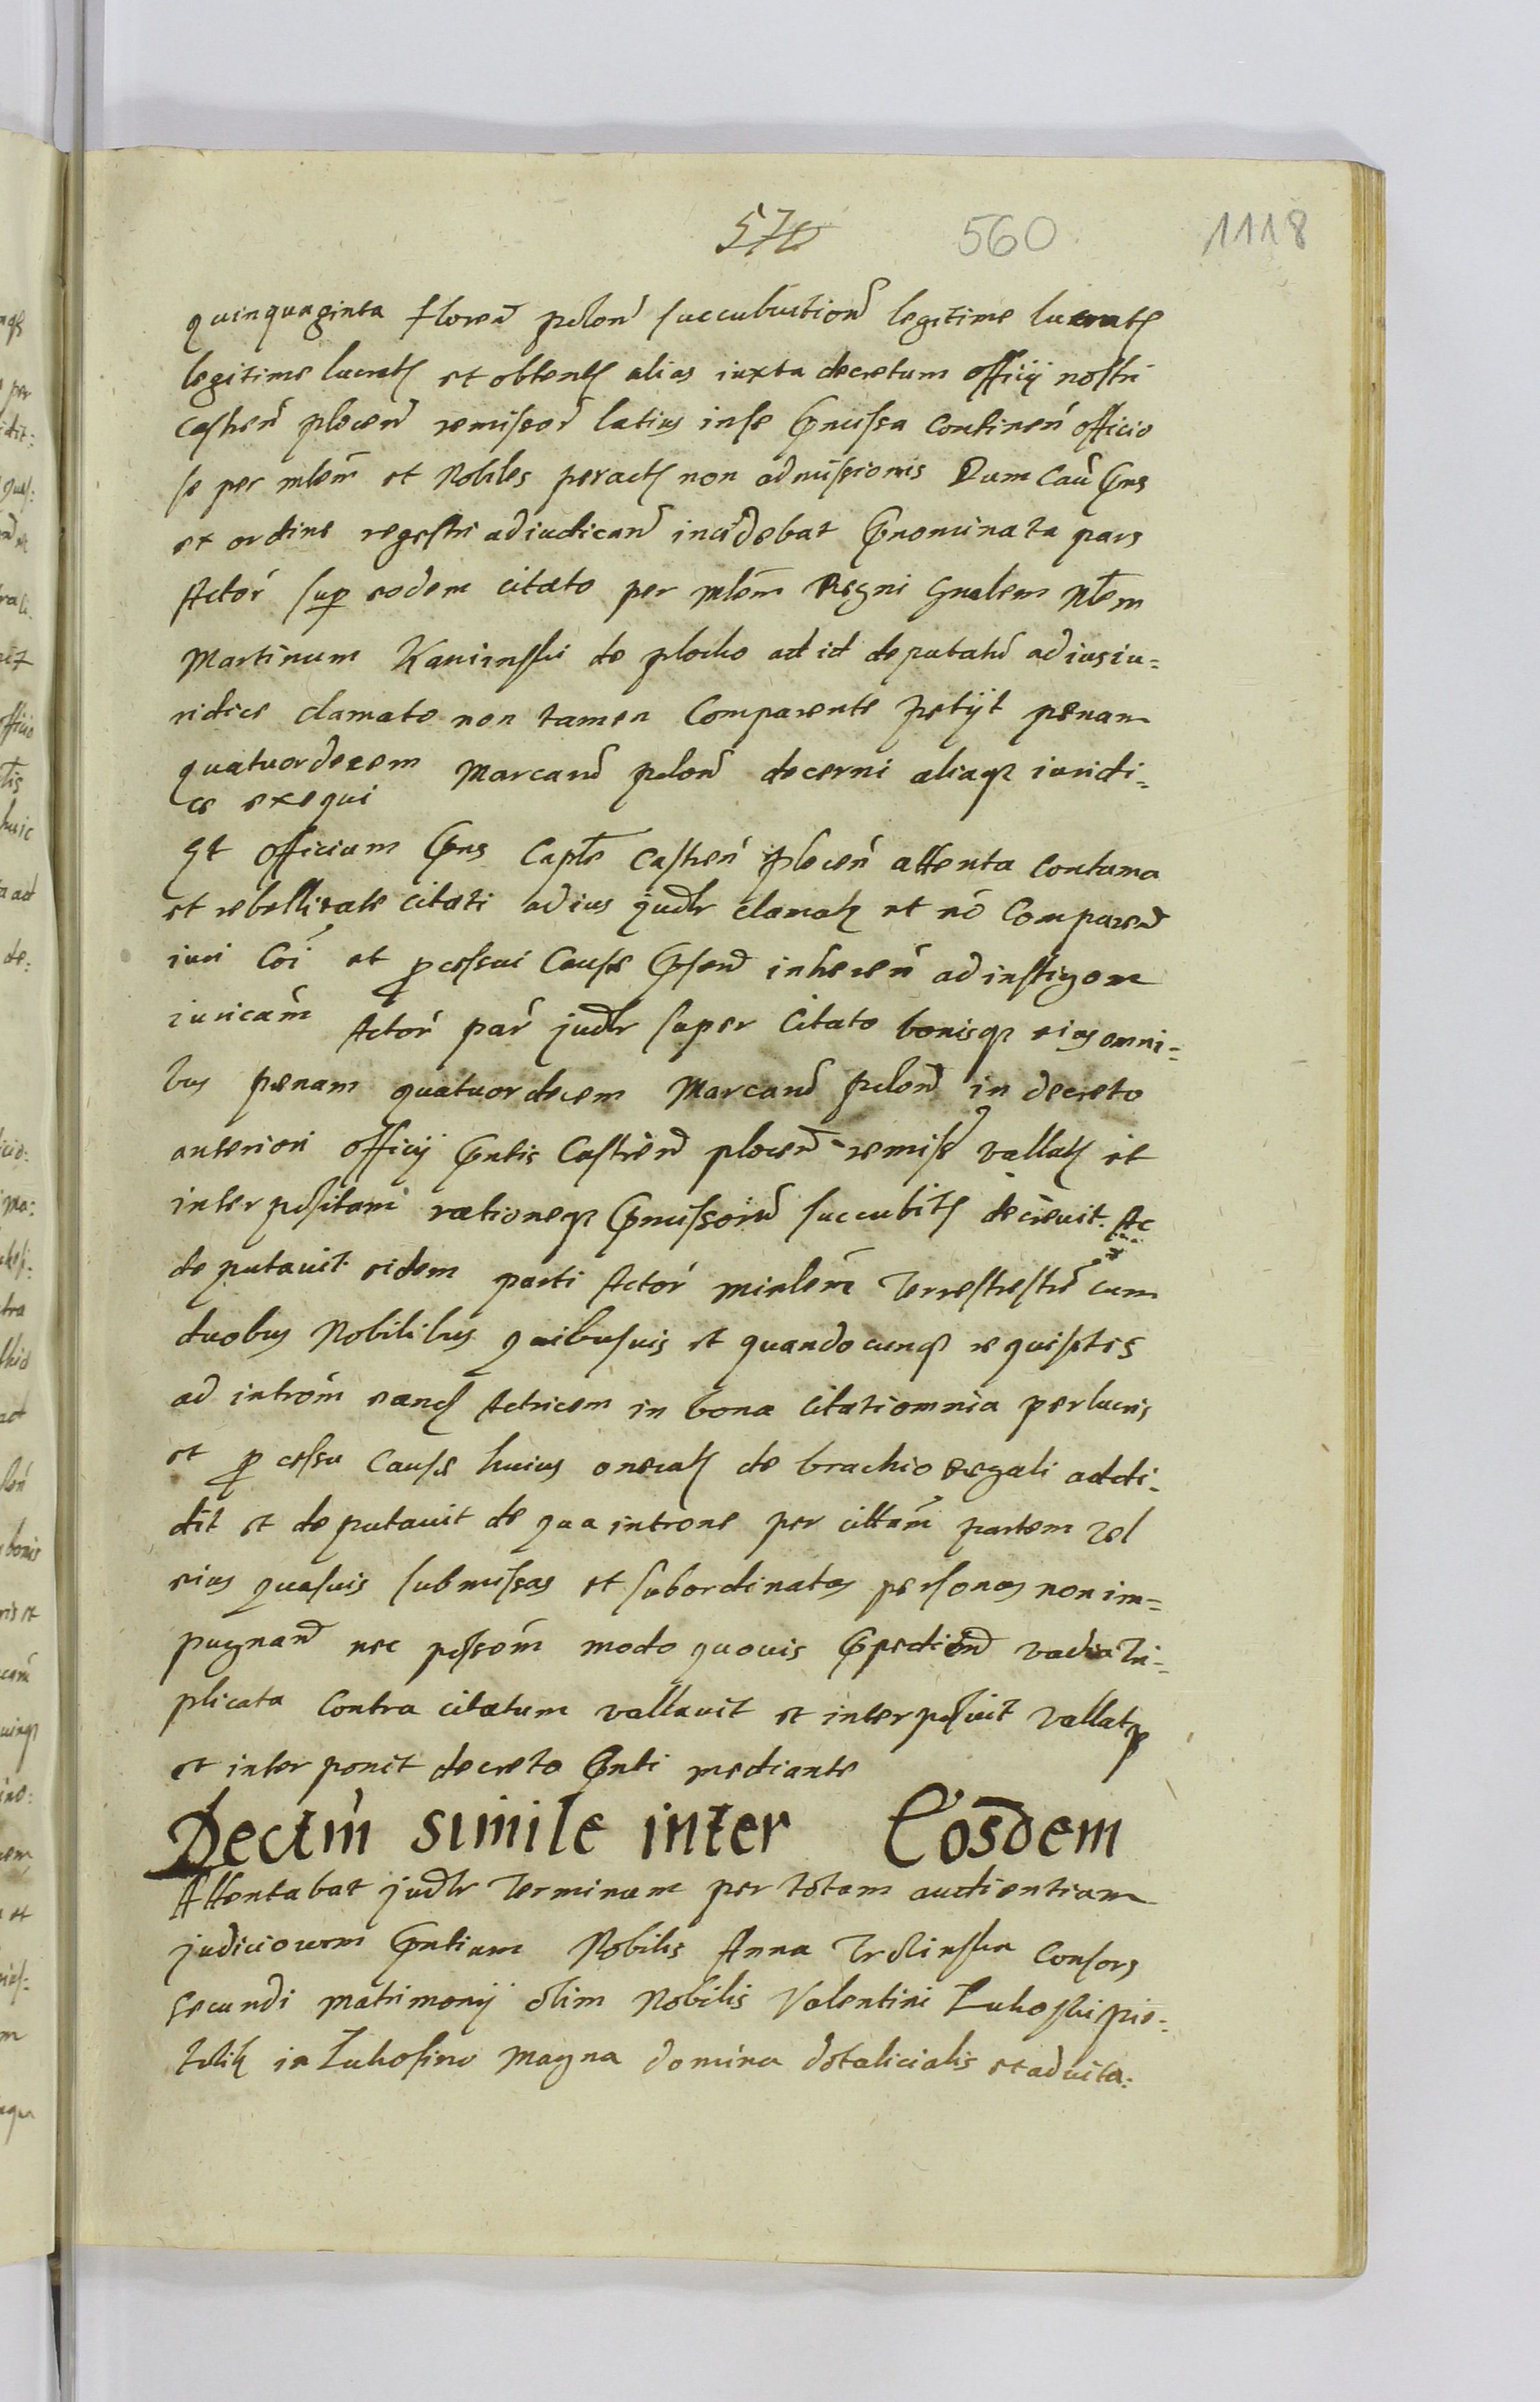 570 560 1118
quinquaginta floren polon succubution legitime lucrat
legitime lucrat et obtent alias iuxta decretum officij nostri
castren plocen remissor latius in se praemissa continen officio
se per mlem et Nobiles peract non admissionis Dum cau pns
ex ordine regestri adiudicand incidebat prenominata pars
Actor sup eodem citato per mlem Regni gnalem Mlem
Martinum Kaminski de plocko ad id deputatu ad ius iu=
ridice clamato non tamen Comparente petijt penam
quatuordecem Marcaru polon decerni aliaq iuridi=
ce exequi
Et Officium pns Capte Castren plocen attenta contuma
et rebellitate citati ad ius judlr clamat et no Comparen
iuri Coi et processui Cause psent inheren ad instigone
iuricam Actor par judlr super Citato bonisq eius omni=
bus penam quatuordecem Marcaru polon in decreto
anteriori officij pntis Castren plocen remiss vallat et
interpositam rationeq pmissoru succubit decrevit. Ac
deputavit eidem parti Actor minlem Terrestrestre cum
duobus Nobilibus quibusvis et quandocunq requisitis
ad introm eand Actricem in bona Citati omnia per lucris
et processu Cause huius onerat de brachio regali addi=
dit et deputavit de qua introne per citatam partem vel
eius quasvis submissas et subordinatas personas non im=
pugnand nec possom modo quovis ppediend vadia tri=
plicata contra citatum vallavit et interposuit vallatq
et interponit decreto pnti mediante
Decrtm simile inter Eosdem
Attentabat judlr Terminum per totam audientiam
judiciorum pntium Nobilis Anna Trolinska Consors
secundi matrimonij olim Nobilis Valentini Lukoski pie=
in Lukosino Magna domina dotalicialis et advita: